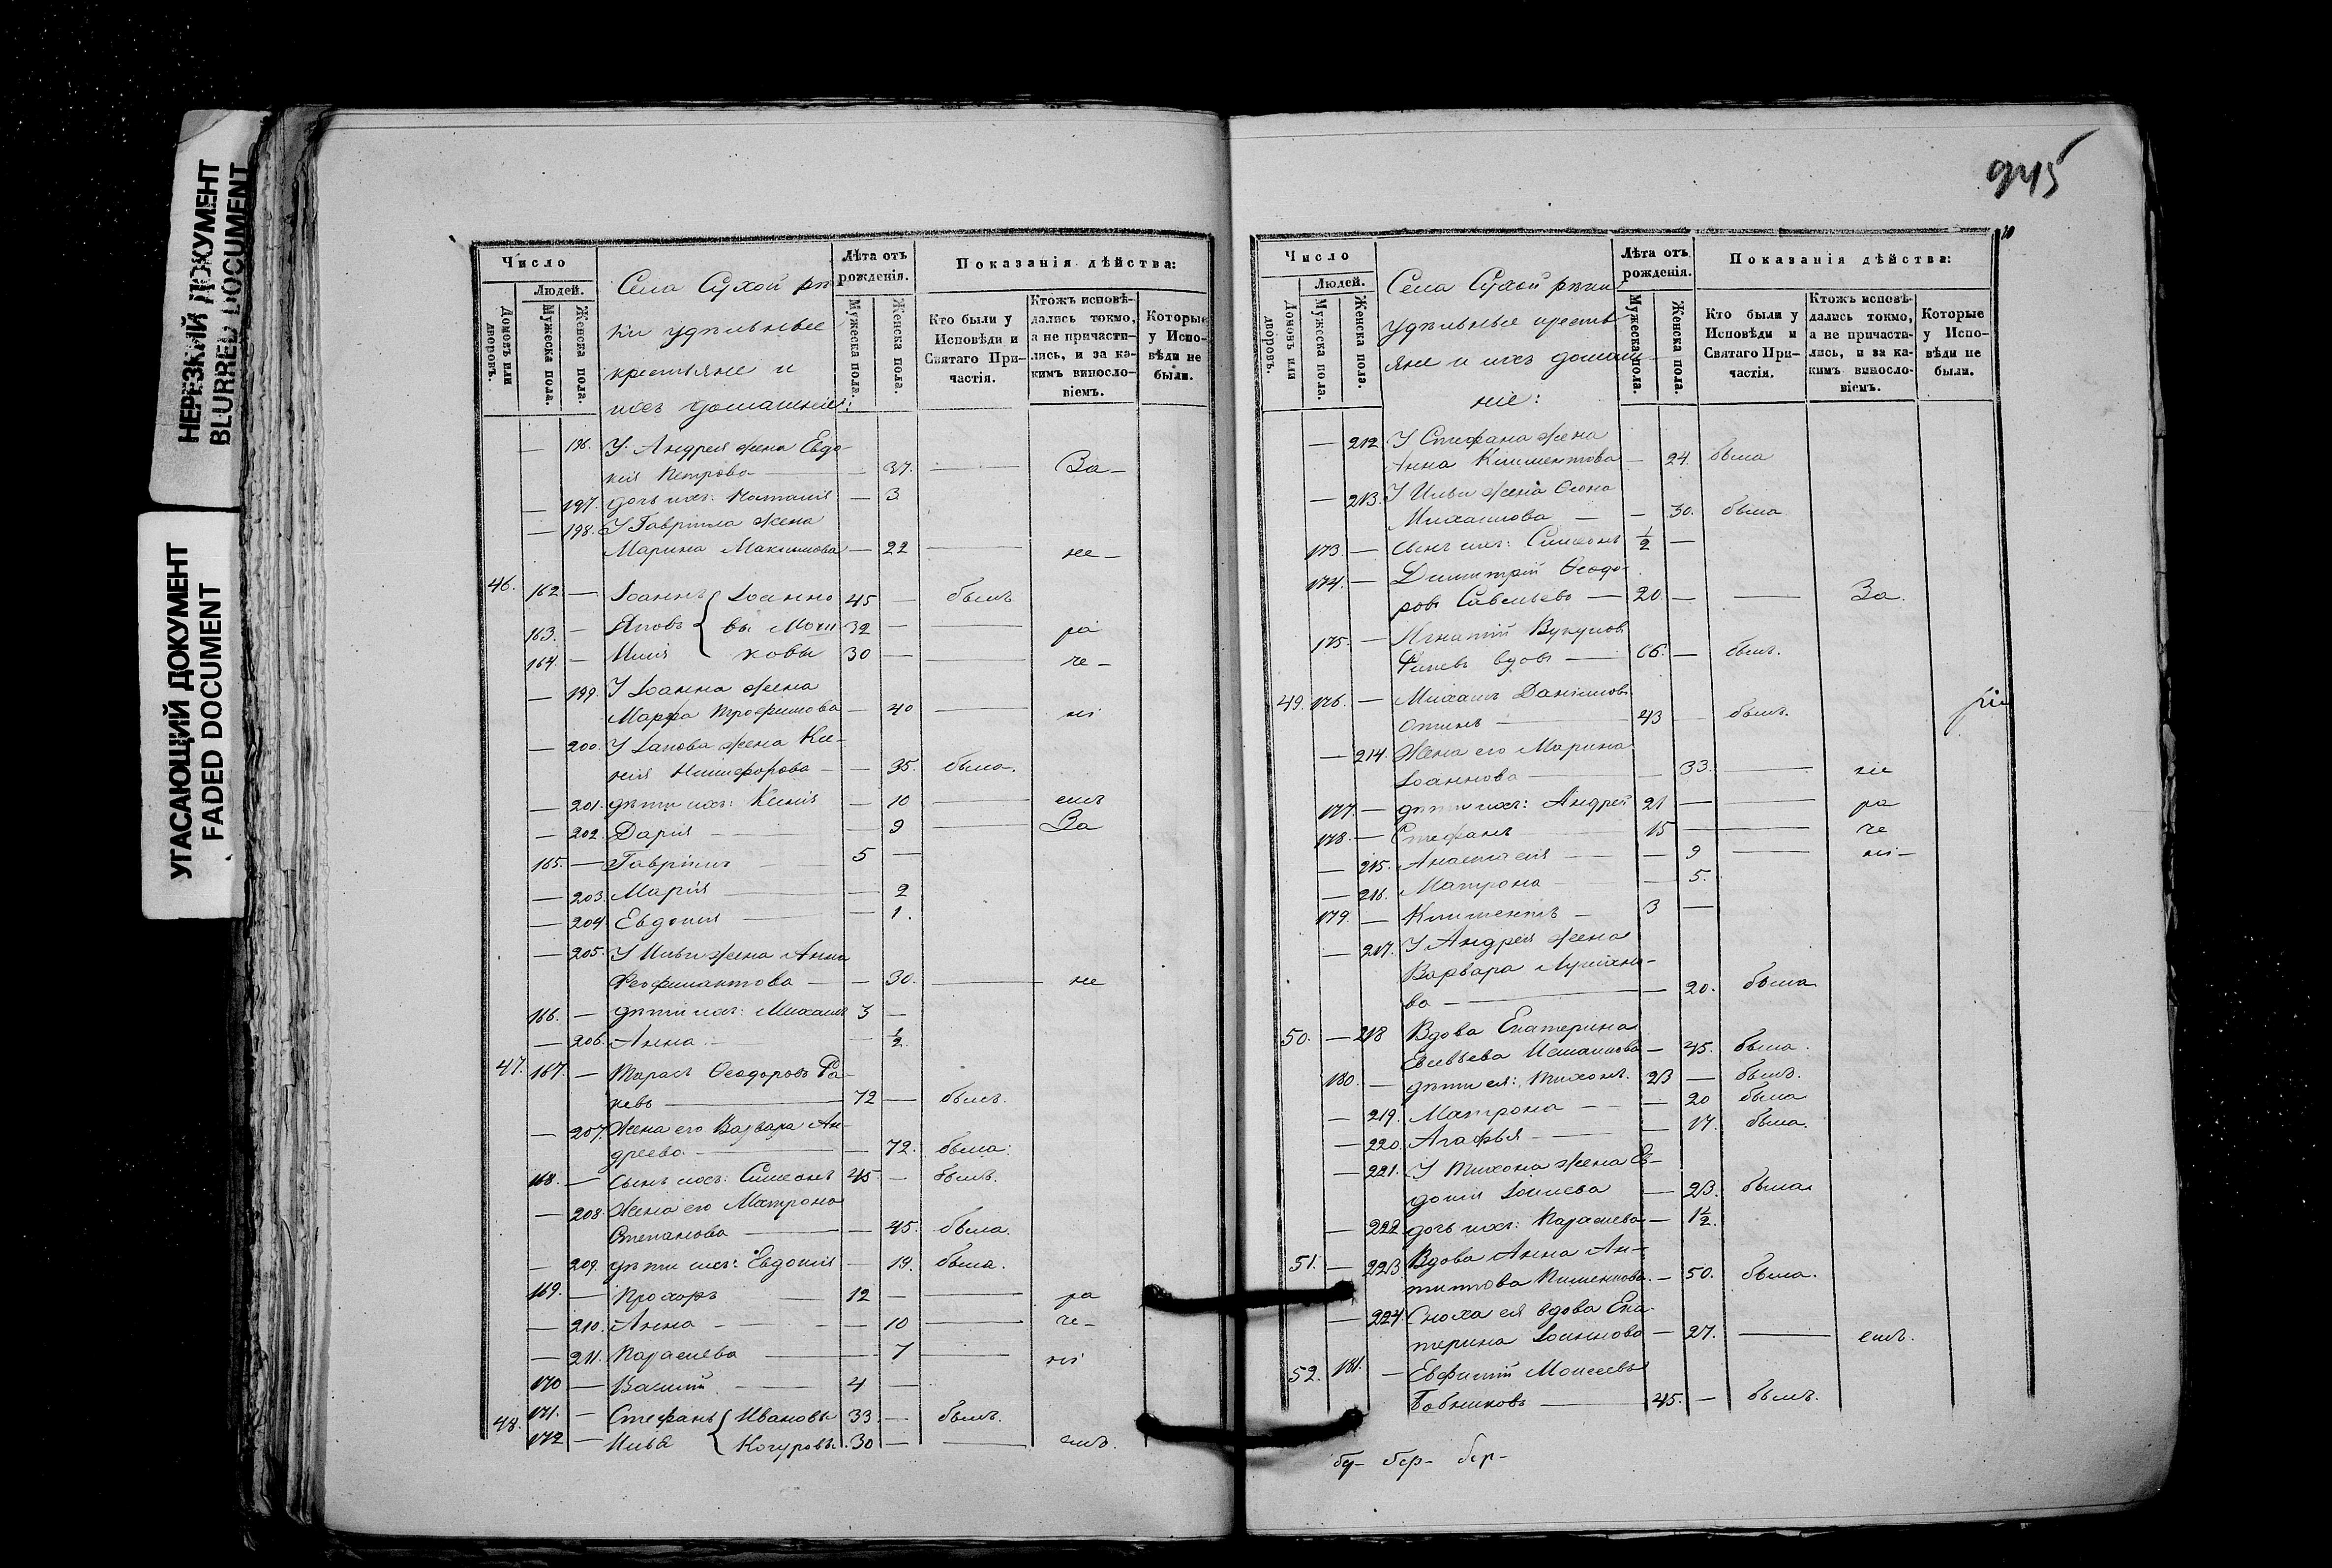 НЕРЕЗКИЙ ДОКУМЕНТ
BLURRED DOCUMENT
УГАСАЮЩИЙ ДОКУМЕНТ
FADED DOCUMENT
Число
Людей.
Домовъ или дворовъ.
Мужеска пола.
Женска пола.
Села Сухой рѣч
ки удѣльные
крестьяне и
ихъ домашніе:
Лѣта отъ рожденія.
Мужеска пола.
Женска пола.
Показанія дѣйства:
Кто были у Исповѣди и Святаго Причастія.
Ктожъ исповѣ-
дались токмо,
а не причасти-
лись, и за ка-
кимъ винosло-
віемъ.
Которые у Испо-
вѣди не были.
— 196. У Андрея жена Евдо-
кія Петрова — 37. — За —
— 197. дочь ихъ: Наталія — 3
— 198. У Гавріила жена
Марина Максимова — 22 — не —
46. 162. — Іоаннъ Іоанно 45 — былъ
163. — Яковъ вы Мочи 32 — — ра
164. — Илія ковы 30 — — че —
— 199. У Іоанна жена
Марфа Трофимова — 40 — ні
— 200. У Іакова жена Ксе-
нія Никифорова — 35. была.
— 201. дѣти ихъ: Ксенія — 10 — емъ
— 202. Дарія — 9 — За
165. — Гавріилъ 5 —
— 203. Марія — 2
— 204. Евдокія — 1.
— 205. У Ильи жена Анна
Феофилактова — 30. — не
166. — дѣти ихъ: Михаилъ 3 —
— 206. Анна — ½
47. 167. — Тарасъ Ѳеодоровъ Ра-
невъ 72 — былъ.
— 207. Жена его Варвара Ан-
дреева — 72. была.
168. — Сынъ ихъ: Симеонъ 45 — былъ.
— 208. Жена его Матрона
Степанова — 45. была.
— 209. дѣти ихъ: Евдокія — 19. была.
169. — Прохоръ 12 — — ра
— 210. Анна — 10 — че —
— 211. Параскева — 7 — ні
170 — Василій 4 —
48. 171. — Стефанъ Ивановы 33 — былъ.
172 — Илья Кочуровы 30 — — емъ.
945
Число
Людей.
Домовъ или дворовъ.
Мужеска пола.
Женска пола.
Села Сухой рѣчки
удѣльные кресть
яне и ихъ домаш
ніе:
Лѣта отъ рожденія.
Мужеска пола.
Женска пола.
Показанія дѣйства:
Кто были у Исповѣди и Святаго При-
частія.
Ктожъ исповѣ-
дались токмо,
а не причасти-
лись, и за ка-
кимъ винosло-
віемъ.
Которые у Испо-
вѣди не были.
— 212. У Стефана жена
Анна Климентова — 24. была
— 213. У Ильи жена
Михаилова — 30. была
173. — Сынъ ихъ: Симеонъ ½ —
174. — Димитрій Ѳеодо-
ровъ Савельевъ 20. — — За.
175. — Игнатій Вукуловъ
вдовъ 66. — былъ.
49. 176. — Михаилъ Данииловъ
43 — былъ.
— 214. Жена его Марина
Іоаннова — 33. — не
177. — дѣти ихъ: Андрей 21 — — ра
178. — Стефанъ 15 — — че
— 215. Анастасія — 9 — ні —
— 216. Матрона — 5.
179. — Климентъ 3 —
— 217. У Андрея жена
Варвара
ва — 20. была
50. — 218 Вдова Екатерина
Евсевьева — 45. была.
180. — дѣти ея: Тихонъ. 23 — былъ.
— 219. Матрона — 20 была
— 220. Агафья — 17. была.
— 221. У Тихона жена Ев-
докія — 23. была
— 222 дочь ихъ: Параскева — 1½.
51. — 223. Вдова Анна Ан-
типова — 50. была.
— 224. Сноха ея вдова Ека-
терина Іоаннова — 27. — емъ.
52. 181. — Евфимій Моисеевъ
Бобниковъ 45. — былъ.